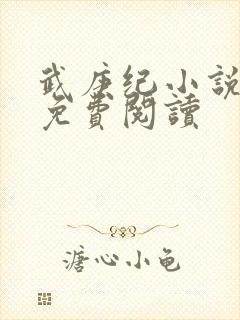 武庚纪小说
免費閱讀
溏心小龟